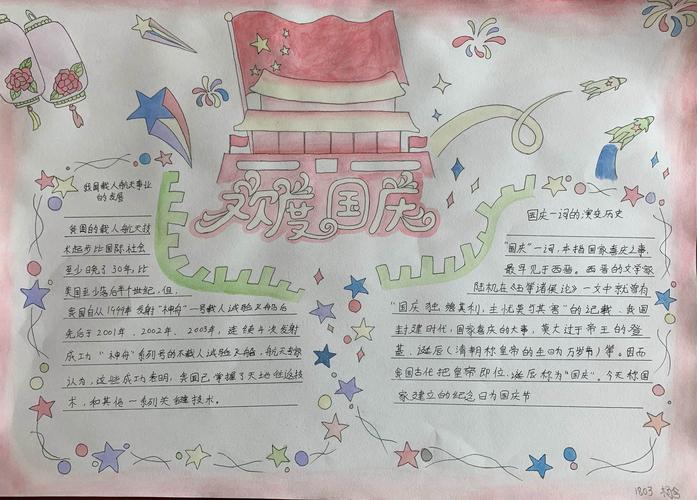 欢度国庆
我国载人航天事业
的发展
我国的载人航天技
术起步比国际社会
至少晚了30年，比
美国至少落后半个世纪，但，
我国自从1999年发射“神舟”一号载人试验飞船后
先后于2001年、2002年、2003年，连续4次发射
成功“神舟”系列号的不载人试验飞船，航天专家
认为，这些成功表明，我国已掌握了天地往返技
术，和其他一系列关键技术。
国庆一词的演变历史
“国庆”一词，本指国家喜庆之事，
最早见于西晋。西晋的文学家
陆机在《五等诸侯论》一文中就曾有
“国庆独飨其利，主忧莫与其害”的记载、我国
封建时代，国家喜庆的大事，莫大过于帝王的登
基、诞辰（清朝称皇帝的生日为万岁节）等。因而
我国古代把皇帝即位、诞辰称为“国庆”。今天称国
家建立的纪念日为国庆节
1803